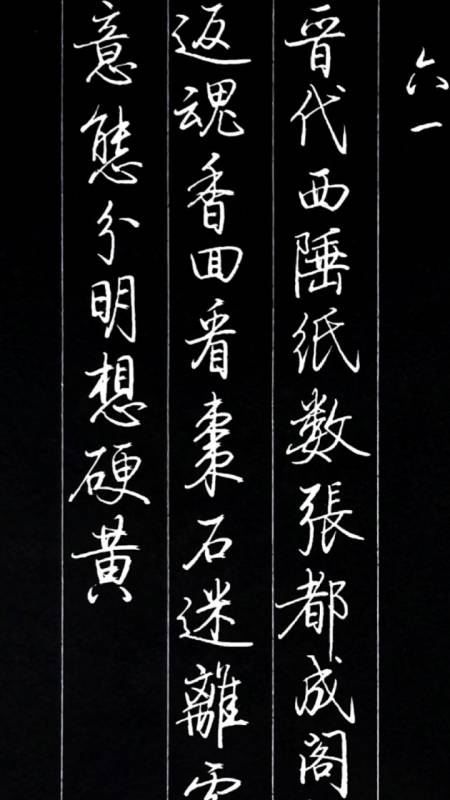 六一
晋代西陲纸数張都成阁
返魂香回看棗石迷離
意態分明想硬黄